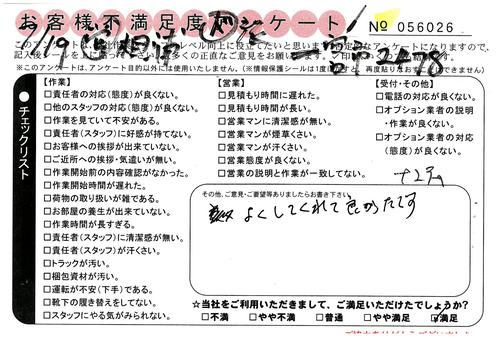 お客様不満足度アンケート
No 056026
※このアンケートは、アンケート目的以外には使用いたしません。
7/19
2478
チェックリスト
【作業】
□責任者の対応(態度)が良くない。
□他のスタッフの対応(態度)が良くない。
□作業を見ていて不安がある。
□責任者(スタッフ)に好感が持てない。
□お客様への挨拶が出来ていない。
□ご近所への挨拶・気遣いが無い。
□作業開始前の内容確認がなかった。
□作業開始時間が遅れた。
□荷物の取り扱いが雑である。
□お部屋の養生が出来ていない。
□作業時間が長すぎる。
□責任者(スタッフ)に清潔感が無い。
□責任者(スタッフ)が汗くさい。
□トラックが汚い。
□梱包資材が汚い。
□運転が不安(下手)である。
□靴下の履き替えをしてない。
□スタッフにやる気がみられない。
【営業】
□見積もり時間に遅れた。
□見積もり時間が長い。
□営業マンに清潔感が無い。
□営業マンが煙草くさい。
□営業マンが汗くさい。
□営業態度が良くない。
□営業の説明と作業が一致してない。
【受付・その他】
□電話の対応が良くない。
□オプション業者の説明
・作業が良くない。
□オプション業者の対応
(態度)が良くない。
その他、ご意見・ご要望等ありましたらお書き下さい。
よくしてくれて良かったです
☆当社をご利用いただきまして、ご満足いただけたでしょうか?
□不満 □やや不満 □普通 □やや満足 ☑満足